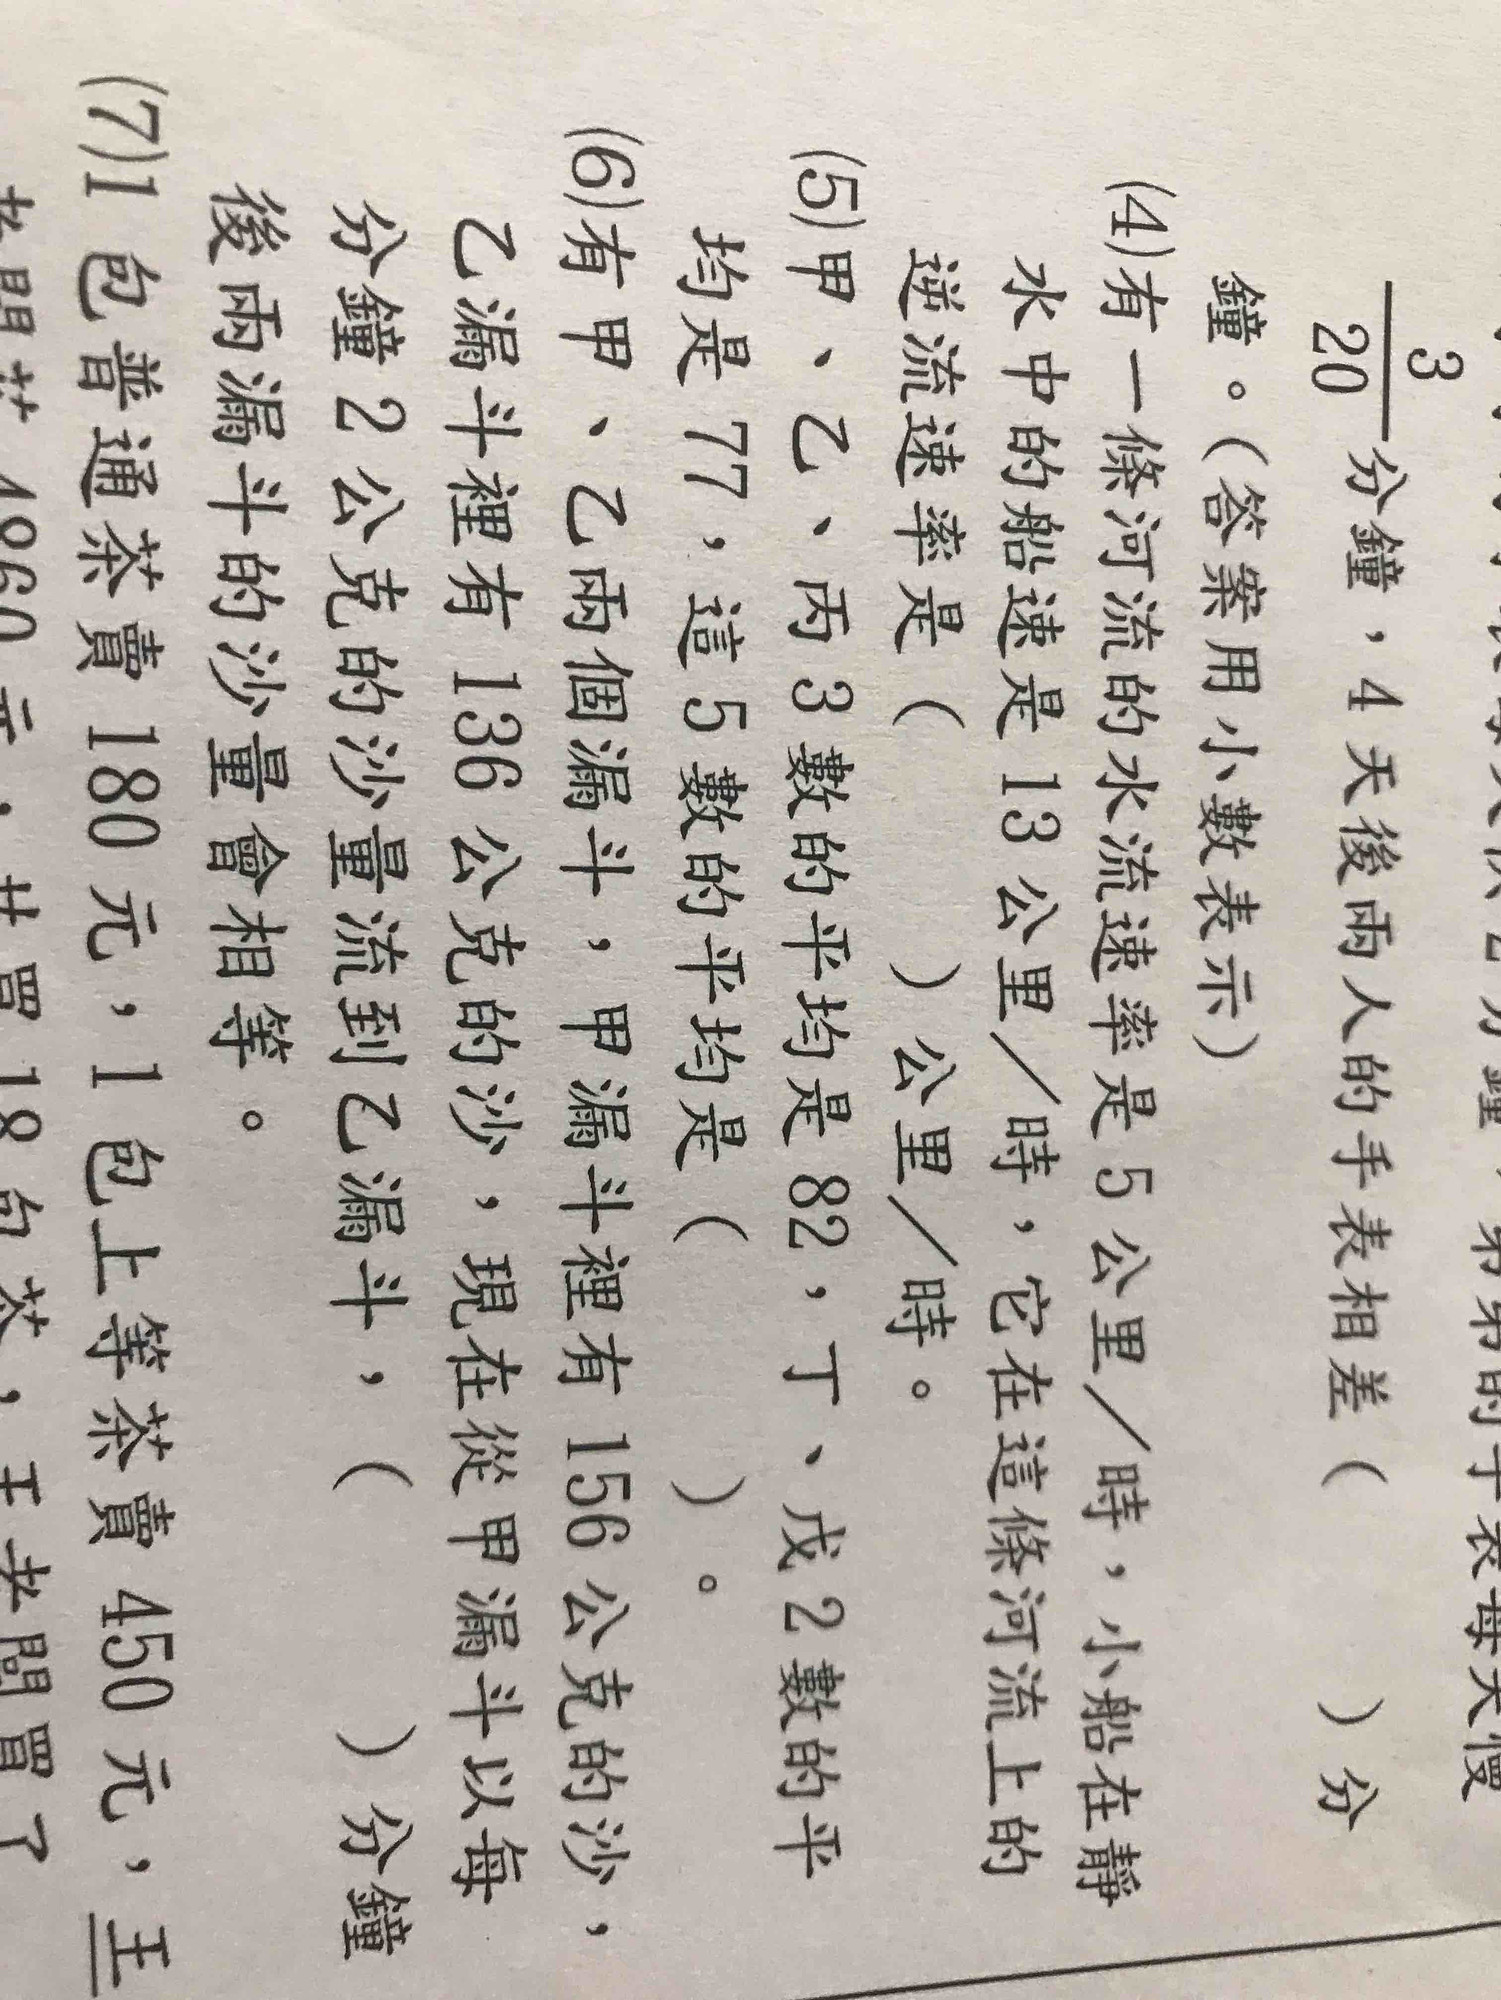 3/20 分鐘，4 天後兩人的手表相差（　　　）分
鐘。（答案用小數表示）
(4)有一條河流的水流速率是 5 公里／時，小船在靜
水中的船速是 13 公里／時，它在這條河流上的
逆流速率是（　　　）公里／時。
(5)甲、乙、丙 3 數的平均是 82，丁、戊 2 數的平
均是 77，這 5 數的平均是（　　　）。
(6)有甲、乙兩個漏斗，甲漏斗裡有 156 公克的沙，
乙漏斗裡有 136 公克的沙，現在從甲漏斗以每
分鐘 2 公克的沙量流到乙漏斗，（　　　）分鐘
後兩漏斗的沙量會相等。
(7)1 包普通茶賣 180 元，1 包上等茶賣 450 元，王
老闆花 4860 元，共買 18 包茶，王老闆買了